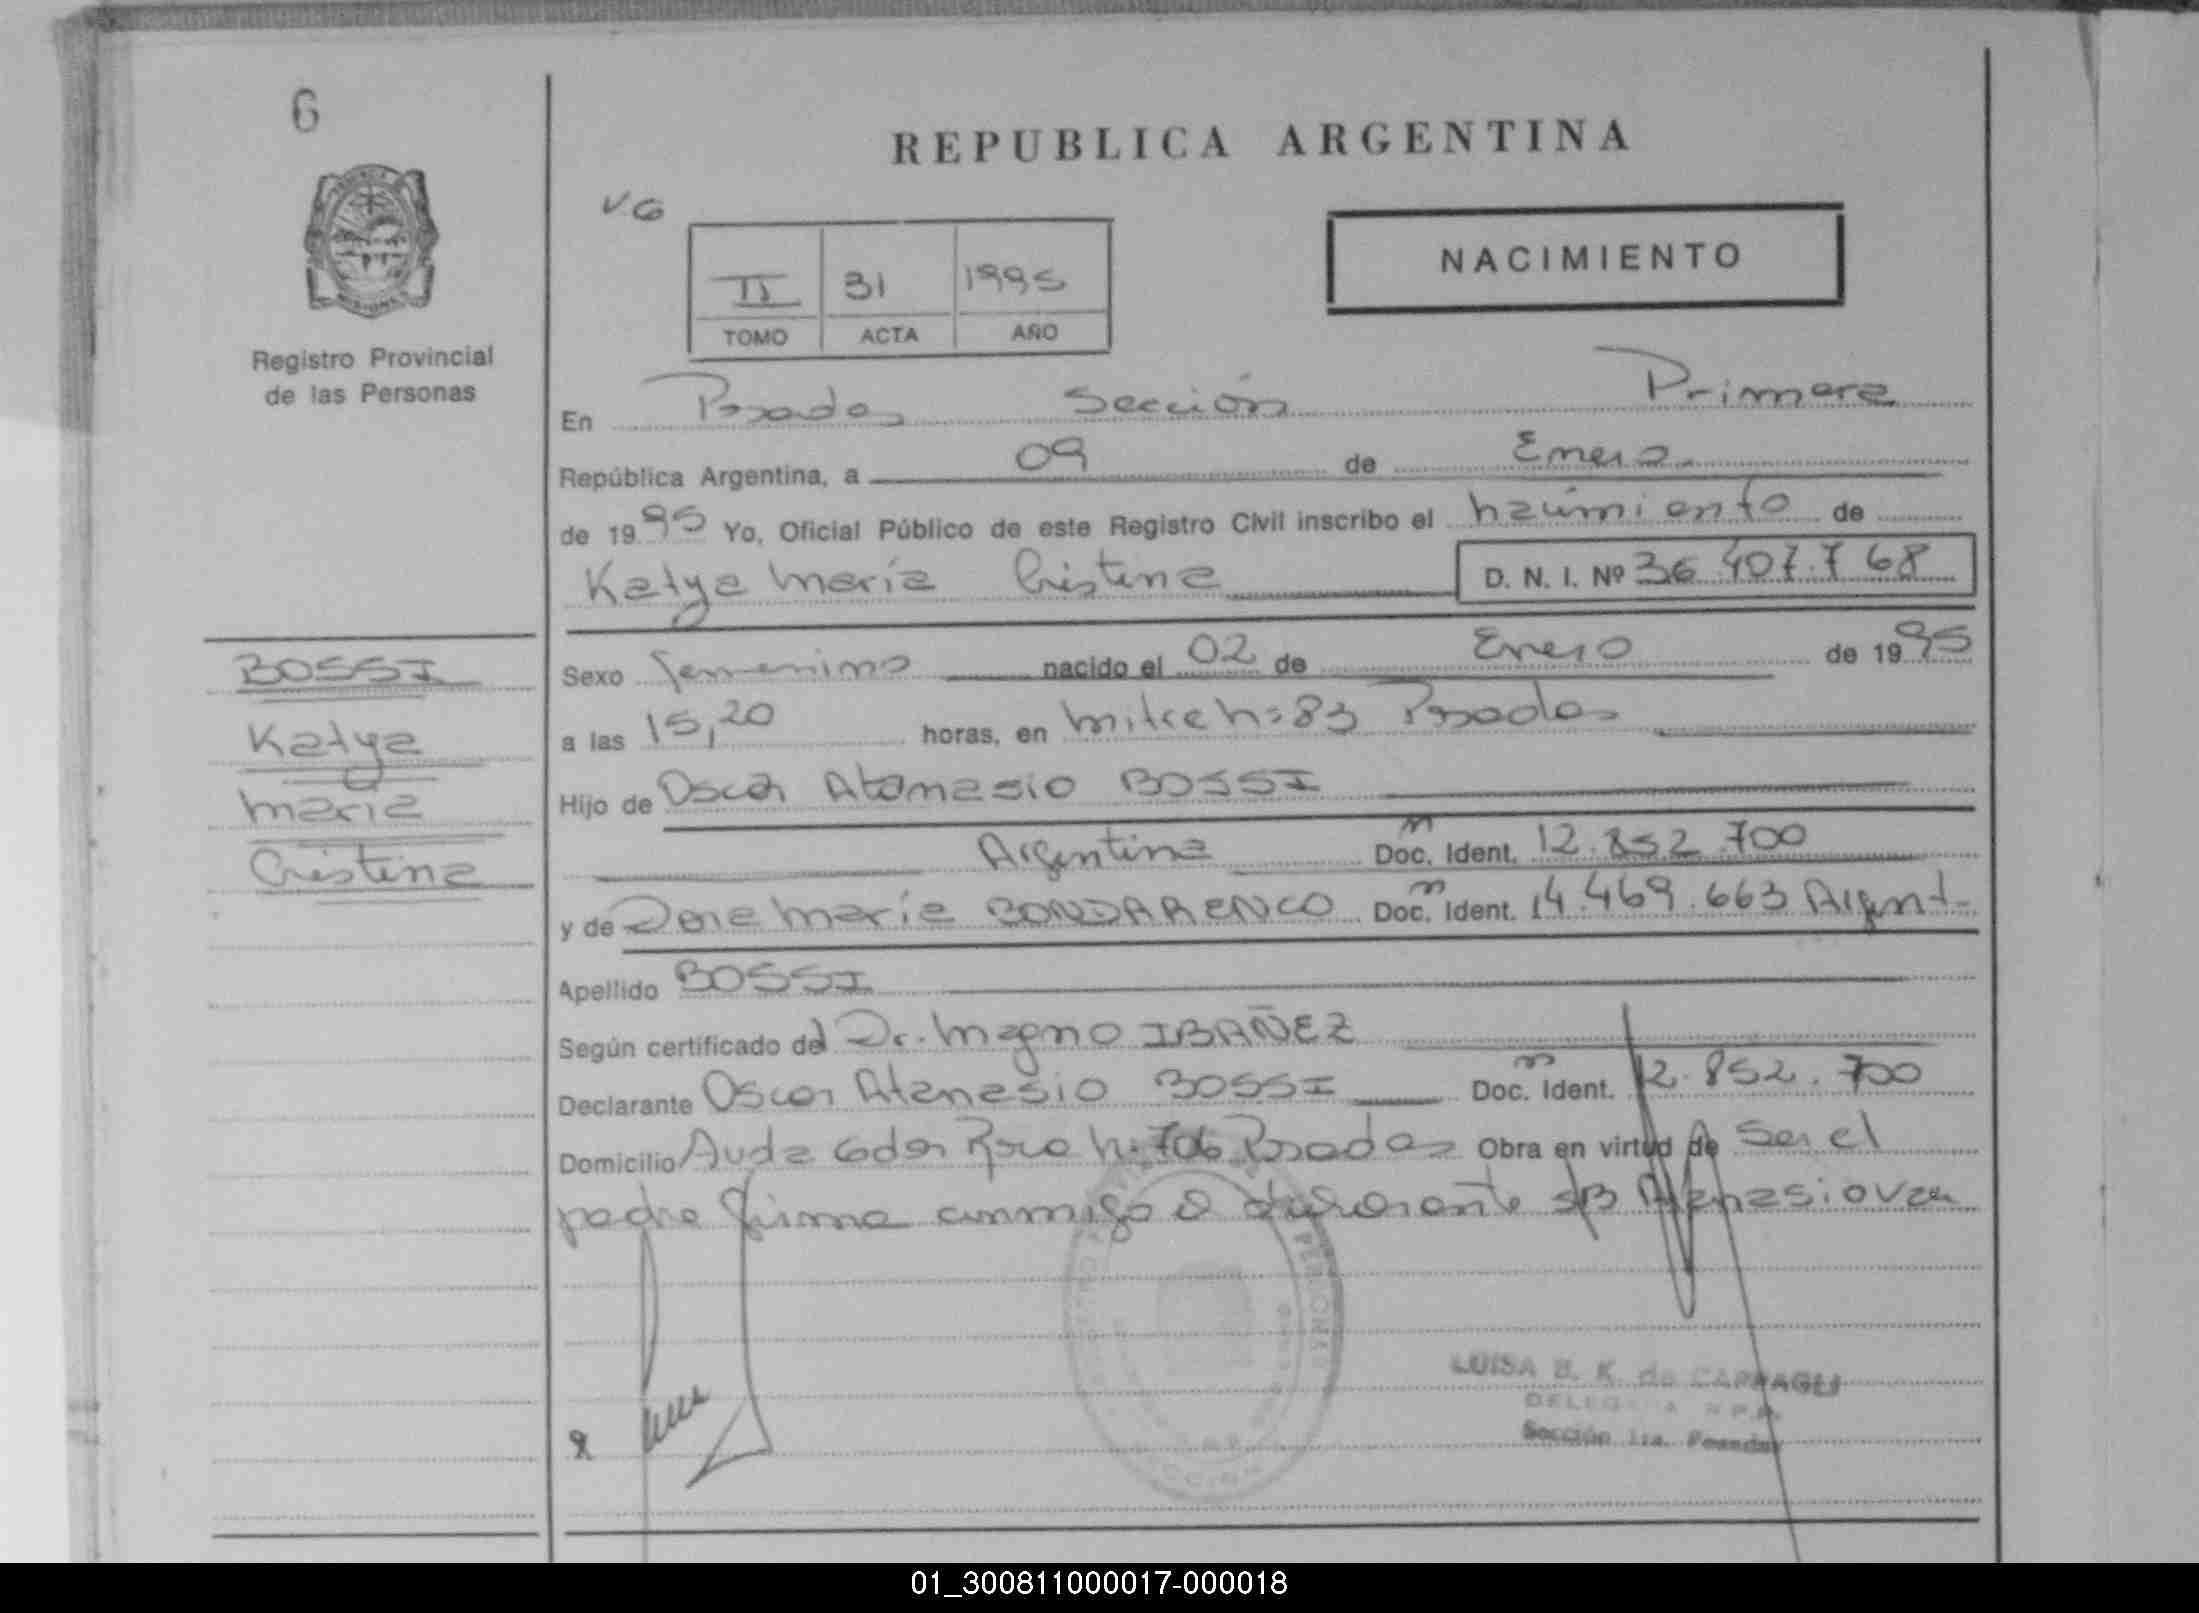 6
REPUBLICA ARGENTINA
V.G
NACIMIENTO
II 31 1995
TOMO ACTA AÑO
Registro Provincial
de las Personas
En Posadas Sección Primera
República Argentina, a 09 de Enero
de 1995 Yo, Oficial Público de este Registro Civil inscribo el nacimiento de
Katya María Cristina D. N. I. Nº 36.407.768
BOSSI
Katya
María
Cristina
Sexo femenino nacido el 02 de Enero de 1995
a las 15,20 horas, en Mitre Nº 83 Posadas
Hijo de Oscar Atanasio BOSSI
Argentina Doc. Ident. 12.852.700
y de Dora María BONDARENCO Doc. Ident. 14.469.663 Argent.
Apellido BOSSI
Según certificado del Dr. Magno IBAÑEZ
Declarante Oscar Atanasio BOSSI Doc. Ident. 12.852.700
Domicilio Avda Cdor Roca Nº 706 Posadas Obra en virtud de Ser el
padre firma conmigo el declarante s/B Atanasio Vale
LUISA B. K. de CAPRAGLI
DELEGADA R.P.P.
Sección 1ra. Posadas
01_300811000017-000018